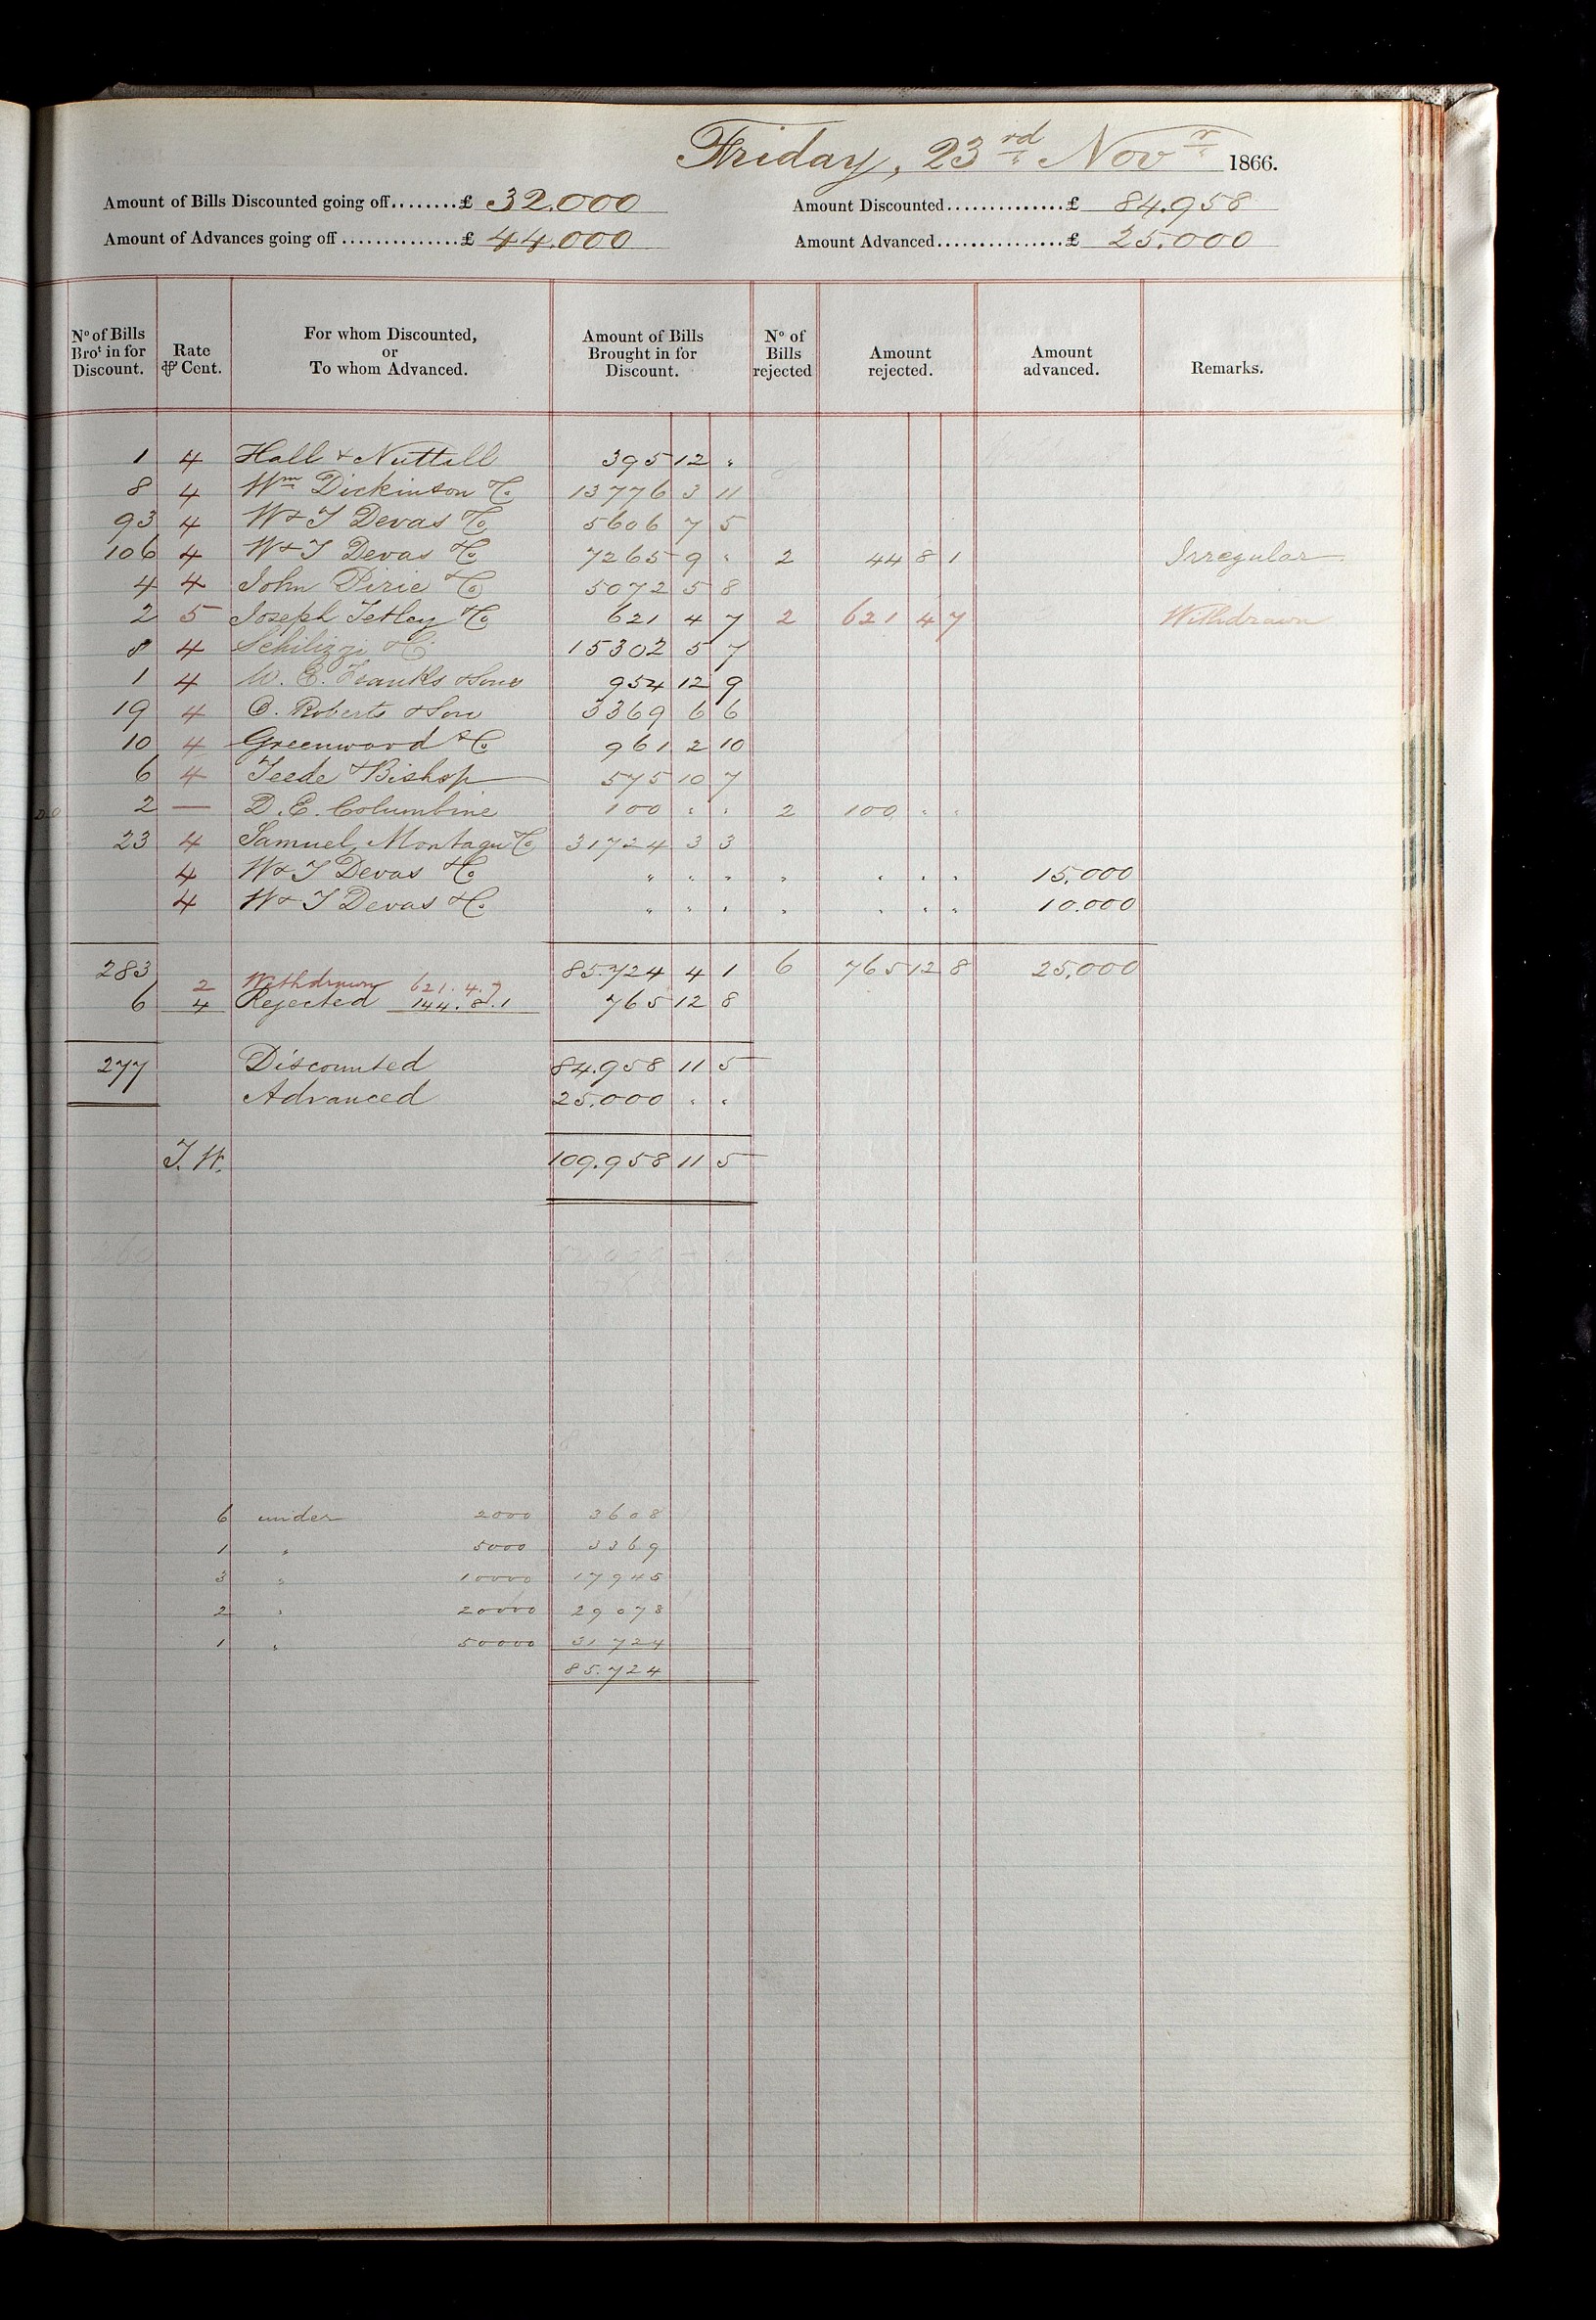 Friday, 23rd Novr 1866.
Amount of Bills Discounted going off........£ 32.000 Amount Discounted..............£ 84.958
Amount of Advances going off..............£ 44.000 Amount Advanced................£ 25.000
No of Bills Brot in for Discount. Rate ⅌ Cent. For whom Discounted, or To whom Advanced. Amount of Bills Brought in for Discount. No of Bills rejected Amount rejected. Amount advanced. Remarks.
1 4 Hall & Nuttall 395 12 "
8 4 Wm Dickinson & Co 13776 3 11
93 4 W & T Devas & Co 5606 7 5
106 4 W & T Devas & Co 7265 9 " 2 44 8 1 Irregular
4 4 John Pirie & Co 5072 5 8
2 5 Joseph Tetley & Co 621 4 7 2 621 4 7 Withdrawn
8 4 Schilizzi & Co 15302 5 7
1 4 W. E. Franks & Sons 954 12 9
19 4 Roberts & Son 3369 6 6
10 4 Greenwood & Co 961 2 10
6 4 Teede & Bishop 575 10 7
2 — D. E. Columbine 100 " " 2 100 " "
23 4 Samuel Montagu & Co 31724 3 3
4 W & T Devas & Co " " " " " " " 15.000
4 W & T Devas & Co " " " " " " " 10.000
283 85.724 4 1 6 765 12 8 25.000
2 Withdrawn 621.4.7
6 4 Rejected 144.8.1 765 12 8
277 Discounted 84.958 11 5
Advanced 25.000 " "
T. W. 109.958 11 5
6 under 2000 3608
1 " 5000 3369
3 " 10000 17945
2 " 20000 29078
1 " 50000 31724
85.724